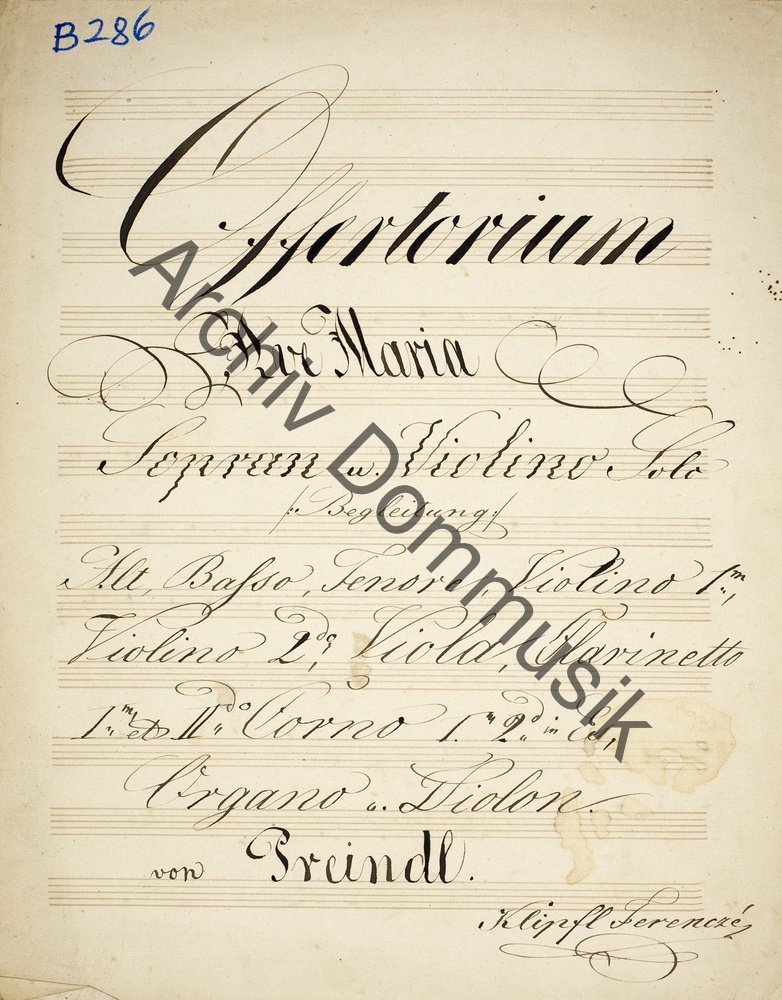 B 286
Offertorium
Ave Maria
Sopran u. Violino Solo
/: Begleitung :/
Alt, Basso, Tenore, Violino 1.m,
Violino 2.do, Viola, Clarinetto
1.m et II.do Corno 1.m 2.d in Es,
Organo u. Violon.
von Preindl.
Klipfl Ferenczé
Archiv Dommusik